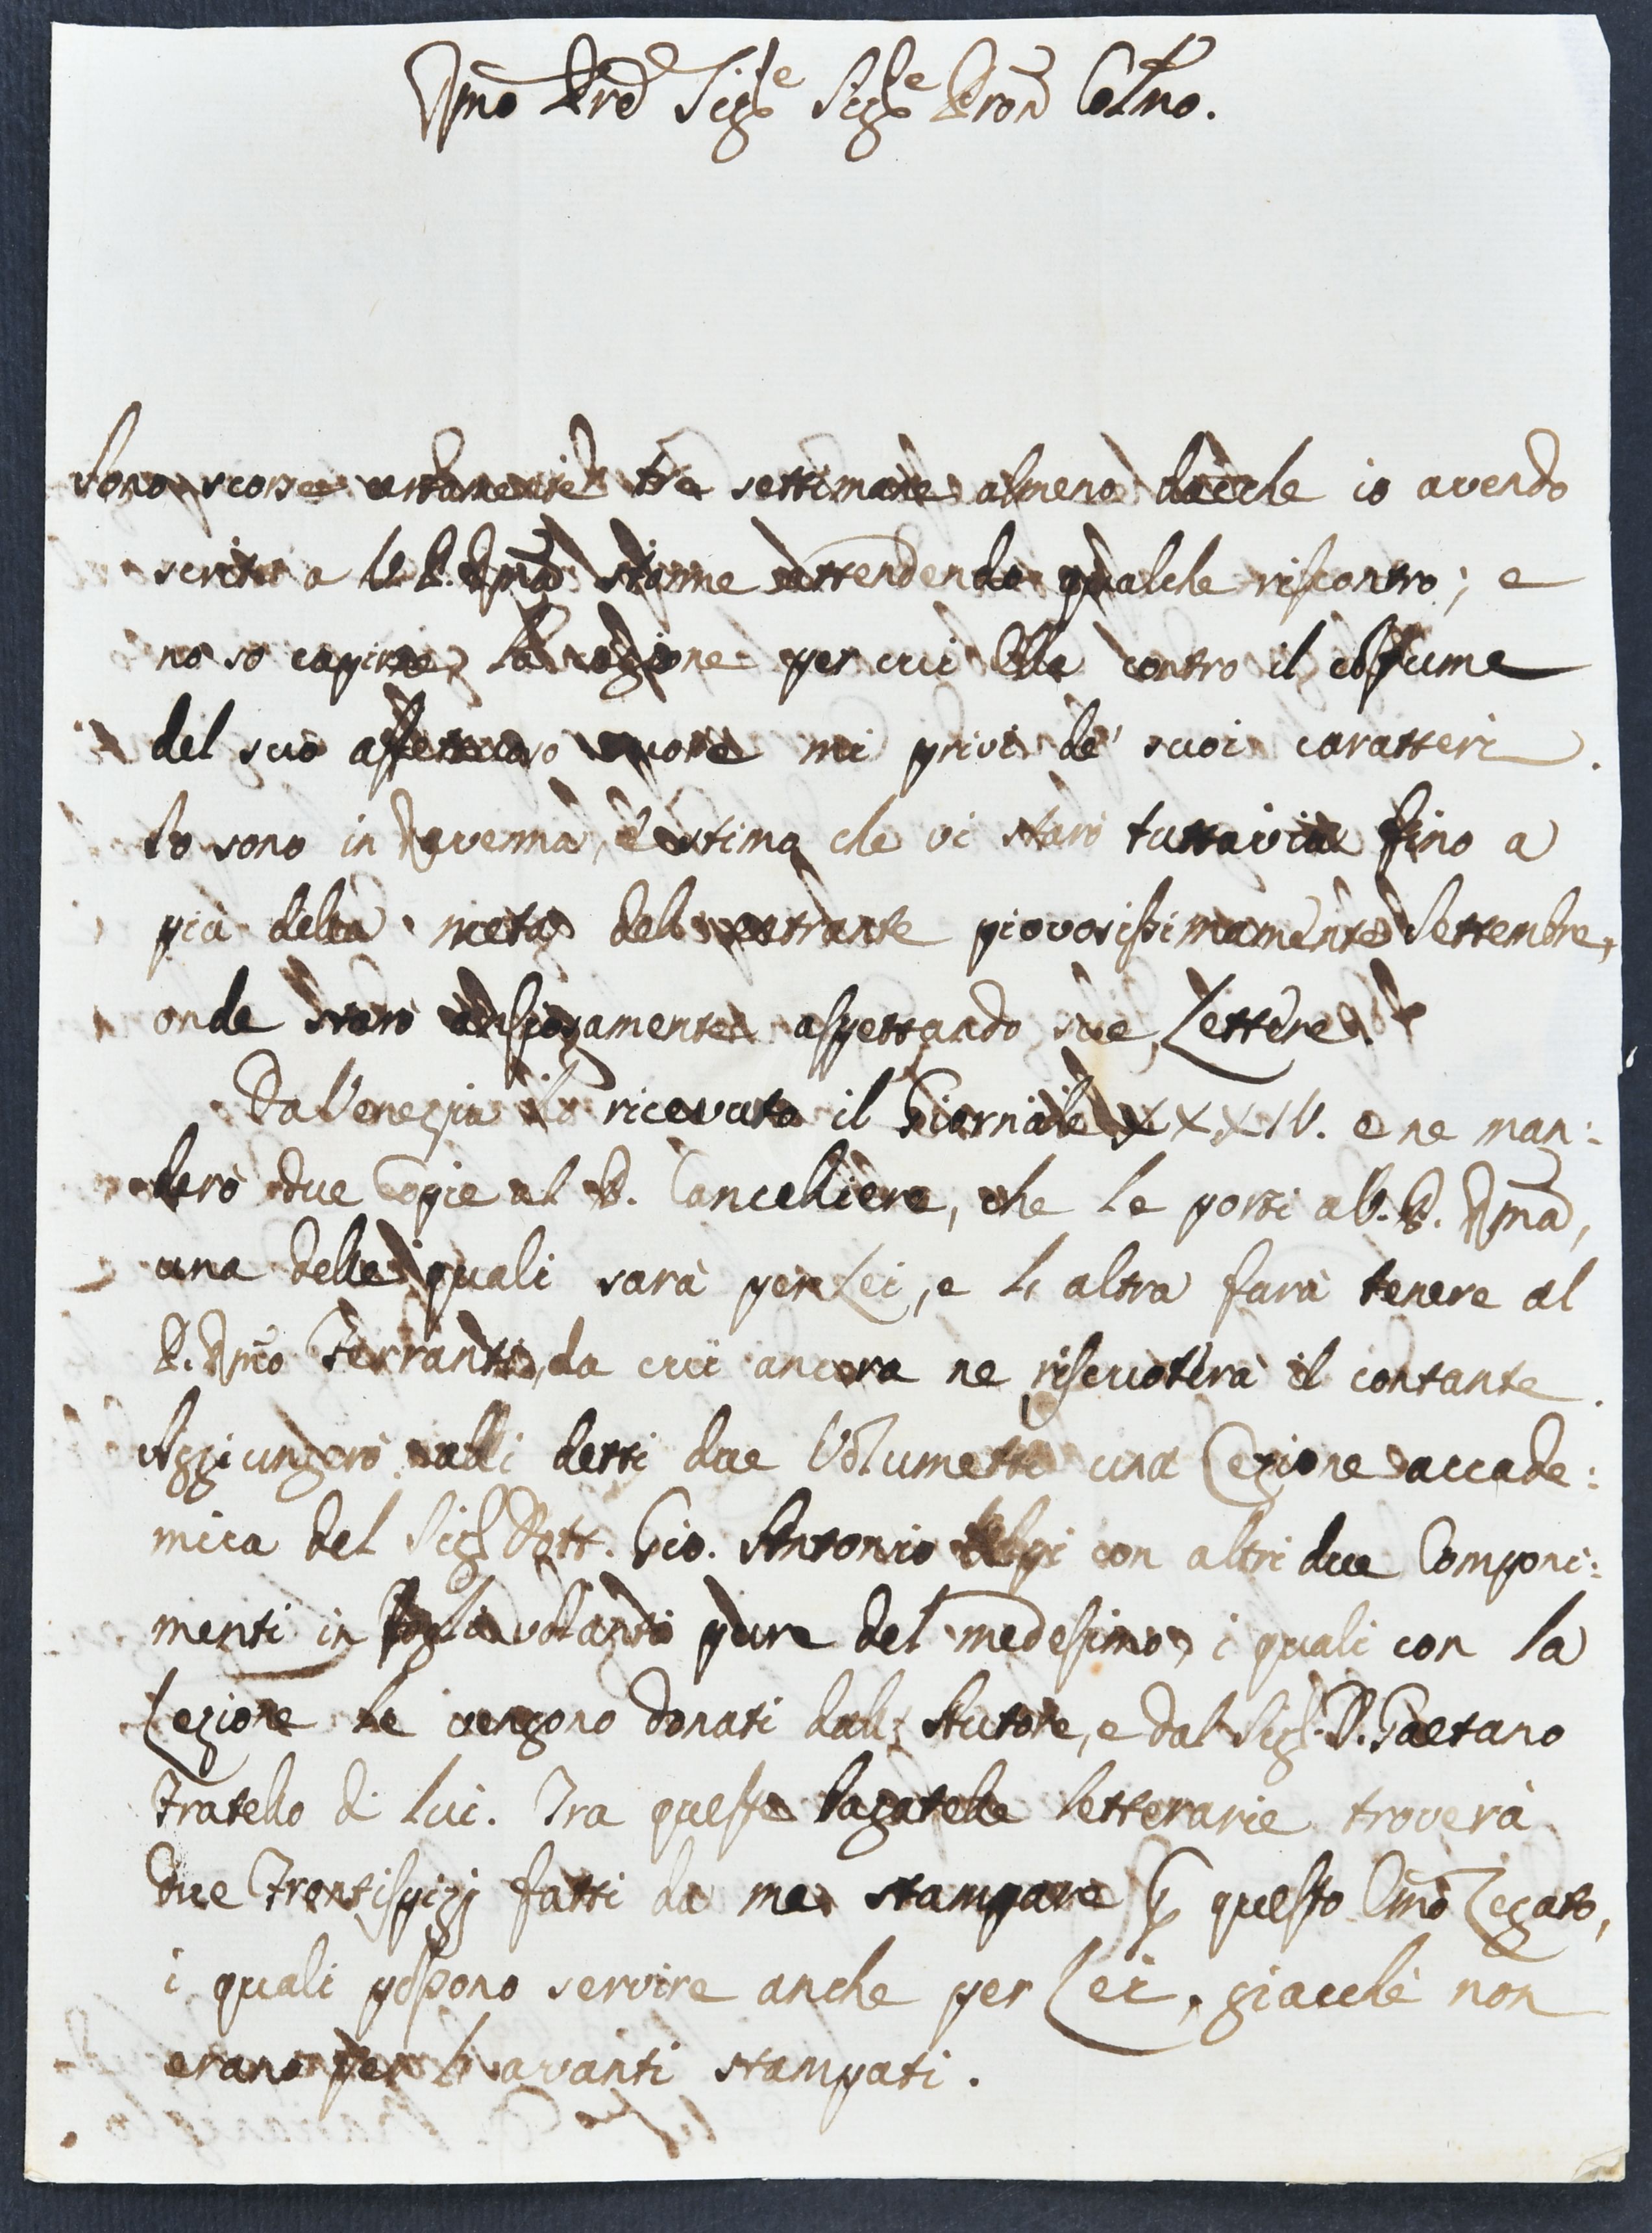 Rmo Pre Sigre Sigre Pron Colmo.
Sono scorse certamente tre settimane almeno dacche io avendo
scritto a V. P. Rma stonne attendendo qualche riscontro; e
nõ so capire la cagione per cui Ella contro il costume
del suo affettuoso cuore mi privi de' suoi caratteri.
Io sono in Ravenna, e stimo che vi starò tuttavia fino a
più della metà dell' entrante piovosissimamente Settembre,
onde starò ansiosamente aspettando sue Lettere.
Da Venezia ho ricevuto il Giornale XXXIV. e ne man:
derò due Copie al P. Cancelliere, che le porti a V. P. Rma,
una delle quali sarà per Lei, e l' altra farà tenere al
P. Rmo Ferranti, da cui ancora ne riscuoterà il contante.
Aggiungerò alli detti due Volumetti una Lezione accade:
mica del Sigr Dott. Gio. Antonio con altri due Componi:
menti in foglio volanti pure del medesimo, i quali con la
Lezione le vengono donati dall' Autore, e dal Sigr D. Gaetano
Fratello di lui. Tra queste bagatelle letterarie troverà
due Frontispizj fatti da me stampare p questo Emõ Legato,
i quali possono servire anche per Lei, giacchè non
erano per l' avanti stampati.